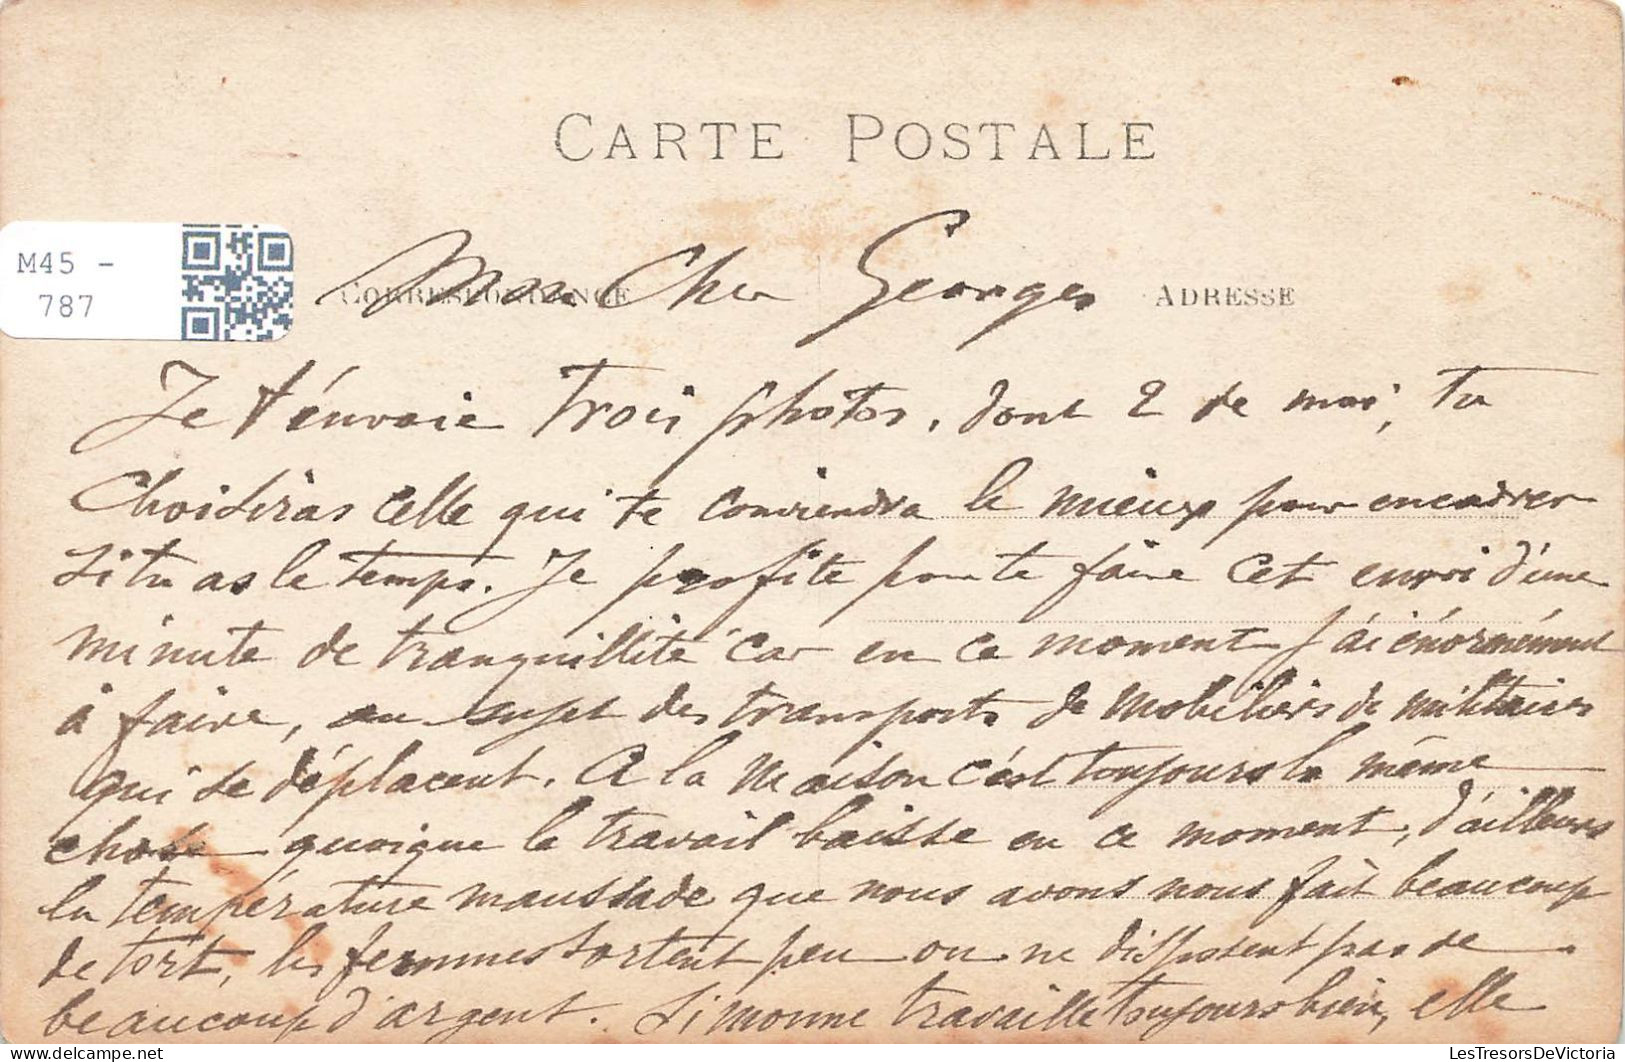 CARTE POSTALE
M45 -
787
CORRESPONDANCE
ADRESSE
Mon Cher Georges
Je t'envoie trois photos, dont 2 de moi, tu
Choisiras celle qui te conviendra le mieux pour encadrer
si tu as le temps. Je profite pour te faire cet envoi d'une
minute de tranquillité car en ce moment j'ai énormément
à faire, au sujet des transports de mobiliers de militaires
qui se déplacent. A la maison c'est toujours la même
chose quoique le travail baisse en ce moment, d'ailleurs
la température maussade que nous avons nous fait beaucoup
de tort, les femmes sortent peu ou ne disposent pas de
beaucoup d'argent. Simonne travaille toujours bien, elle
LesTresorsDeVictoria